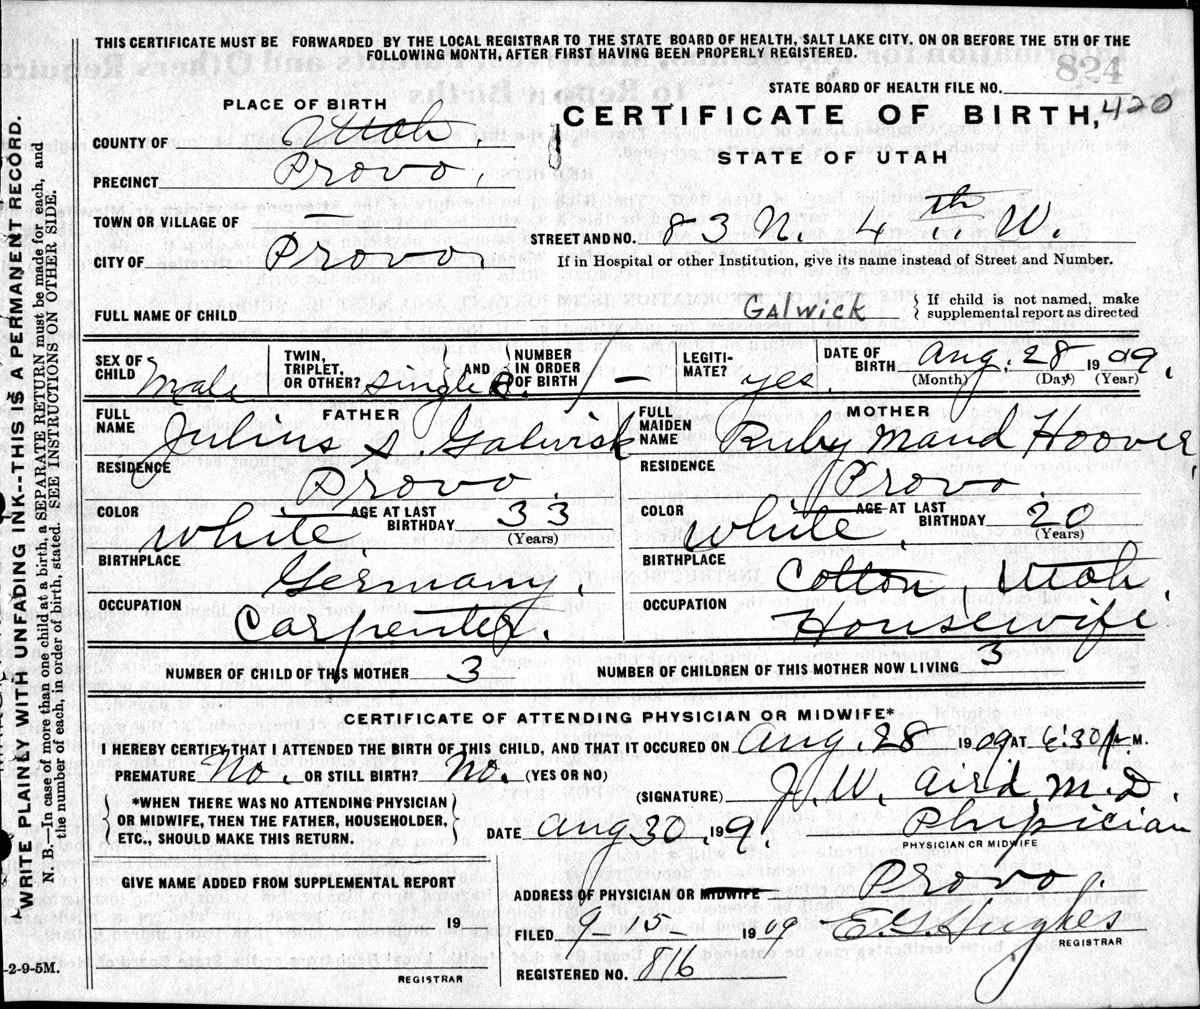 THIS CERTIFICATE MUST BE FORWARDED BY THE LOCAL REGISTRAR TO THE STATE BOARD OF HEALTH, SALT LAKE CITY, ON OR BEFORE THE 5TH OF THE
FOLLOWING MONTH, AFTER FIRST HAVING BEEN PROPERLY REGISTERED.
824
STATE BOARD OF HEALTH FILE NO.
PLACE OF BIRTH
CERTIFICATE OF BIRTH, 420
COUNTY OF Utah.
STATE OF UTAH
PRECINCT Provo.
TOWN OR VILLAGE OF —
STREET AND NO. 83 N. 4th W.
CITY OF Provo.
If in Hospital or other Institution, give its name instead of Street and Number.
FULL NAME OF CHILD GALWICK { If child is not named, make
supplemental report as directed
SEX OF CHILD Male
TWIN, TRIPLET, OR OTHER? single
AND NUMBER IN ORDER OF BIRTH —
LEGITIMATE? yes.
DATE OF BIRTH Aug. 28 1909.
(Month) (Day) (Year)
FATHER
FULL NAME Julius S. Galwisk
RESIDENCE Provo.
COLOR White. AGE AT LAST BIRTHDAY 33
(Years)
BIRTHPLACE Germany.
OCCUPATION Carpenter.
MOTHER
FULL MAIDEN NAME Ruby Maud Hoover
RESIDENCE Provo.
COLOR White. AGE AT LAST BIRTHDAY 20
(Years)
BIRTHPLACE Cotton, Utah.
OCCUPATION Housewife
NUMBER OF CHILD OF THIS MOTHER 3 NUMBER OF CHILDREN OF THIS MOTHER NOW LIVING 3
CERTIFICATE OF ATTENDING PHYSICIAN OR MIDWIFE*
I HEREBY CERTIFY THAT I ATTENDED THE BIRTH OF THIS CHILD, AND THAT IT OCCURED ON Aug. 28 1909 AT 6:30 M.
PREMATURE No. OR STILL BIRTH? No. (YES OR NO)
*WHEN THERE WAS NO ATTENDING PHYSICIAN
OR MIDWIFE, THEN THE FATHER, HOUSEHOLDER,
ETC., SHOULD MAKE THIS RETURN.
(SIGNATURE) J. W. Aird M.D.
DATE Aug 30 199. Physician
PHYSICIAN OR MIDWIFE
GIVE NAME ADDED FROM SUPPLEMENTAL REPORT
19
REGISTRAR
ADDRESS OF PHYSICIAN OR MIDWIFE Provo.
FILED 9-5 1909 E. G. Hughes
REGISTRAR
REGISTERED NO. 816
WRITE PLAINLY WITH UNFADING INK--THIS IS A PERMANENT RECORD.
N. B.—In case of more than one child at a birth, a SEPARATE RETURN must be made for each, and
the number of each, in order of birth, stated. SEE INSTRUCTIONS ON OTHER SIDE.
-2-9-5M.